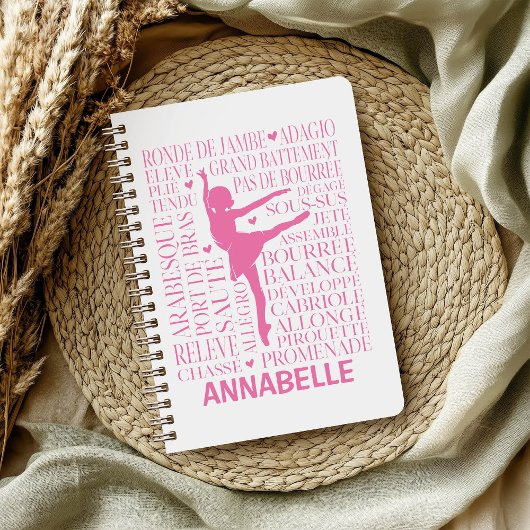 RONDE DE JAMBE ♥ ADAGIO
ELEVÉ GRAND BATTEMENT
PLIÉ ♥ PAS DE BOURRÉE
TENDU DÉGAGÉ
SOUS-SUS
JETÉ
ASSEMBLÉ
BOURRÉE
BALANCÉ
DÉVELOPPÉ
CABRIOLE
ALLONGÉ
PIROUETTE
PROMENADE
ARABESQUE
PORT DE BRAS
SAUTÉ
ALLEGRO
RELEVÉ
CHASSÉ
ANNABELLE